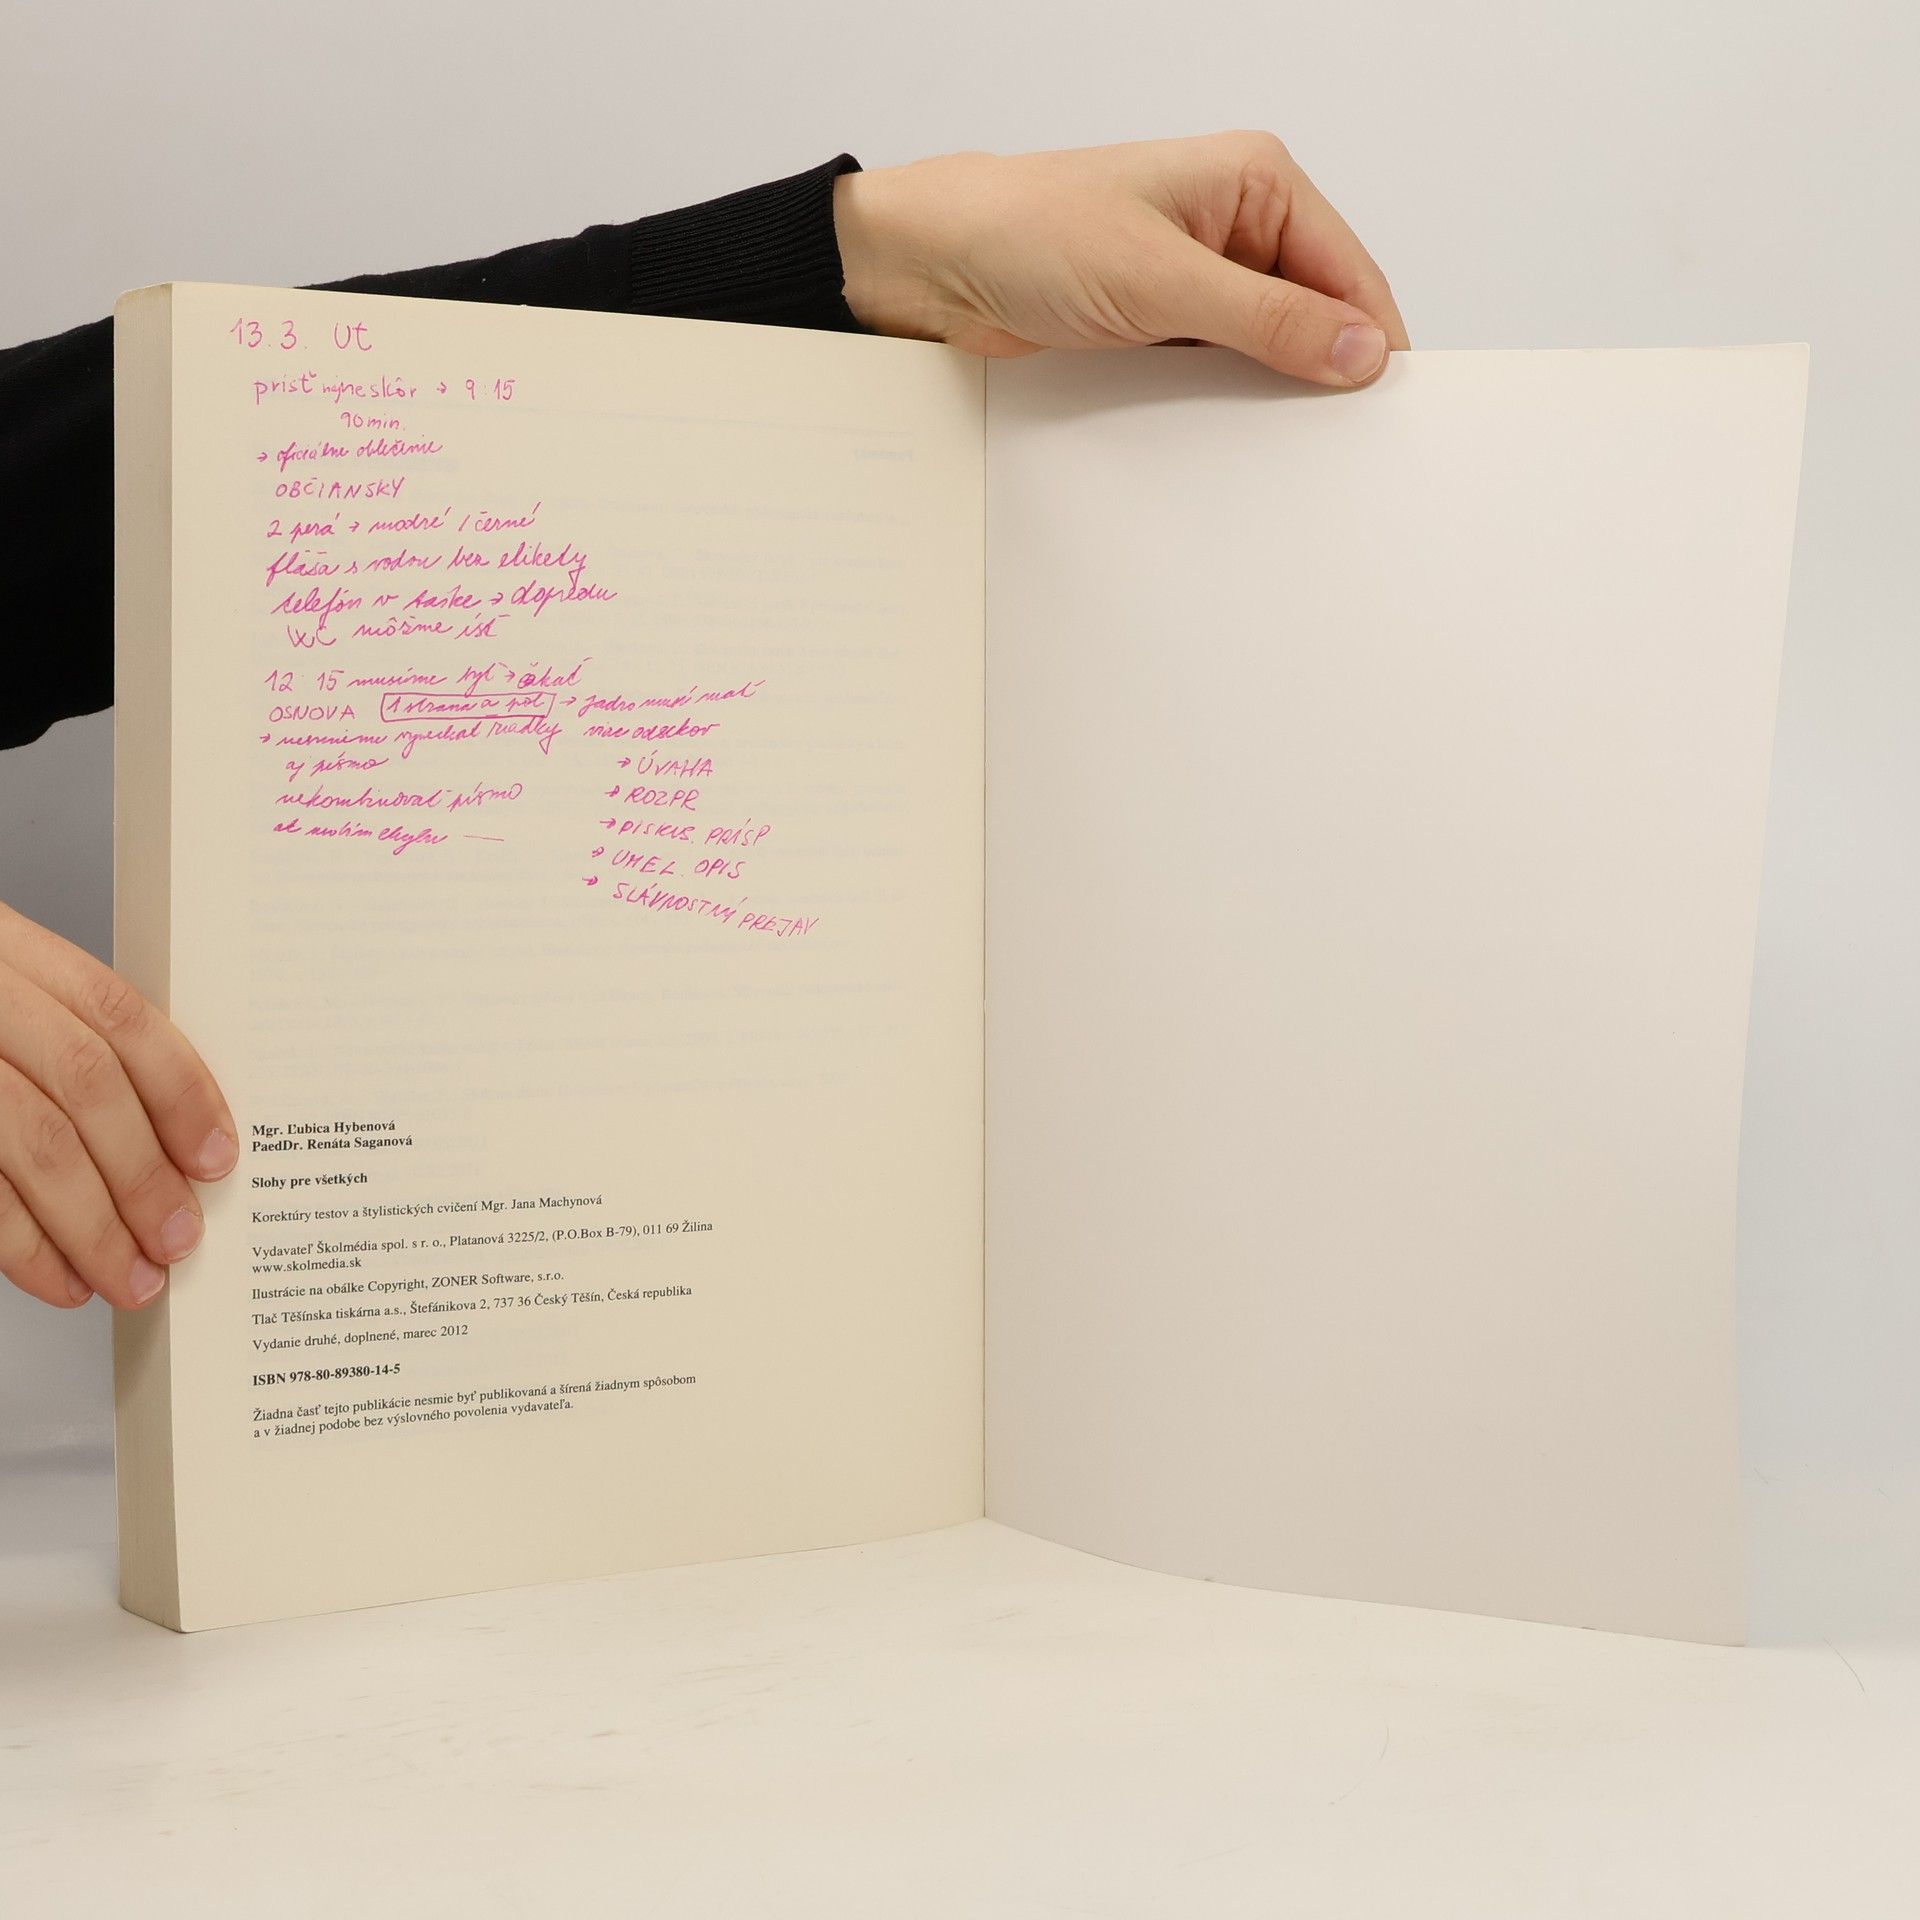 13.3. Ut
prísť najneskôr → 9:15
90 min.
→ oficiálne oblečenie
OBČIANSKY
2 perá → modré / černé
fľáša s vodou bez etikety
telefón v taške → dopredu
WC môžme ísť
12 15 musíme byť → čakať
OSNOVA 1 strana a pol → jadro musí mať
→ nesmieme vynechať riadky viac odsekov
aj písmo
nekombinovať písmo
→ ÚVAHA
→ ROZPR
→ DISKUS. PRÍSP
→ UMEL. OPIS
→ SLÁVNOSTNÝ PREJAV
Mgr. Ľubica Hybenová
PaedDr. Renáta Saganová
Slohy pre všetkých
Korektúry testov a štylistických cvičení Mgr. Jana Machynová
Vydavateľ Školmédia spol. s r. o., Platanová 3225/2, (P.O.Box B-79), 011 69 Žilina
www.skolmedia.sk
Ilustrácie na obálke Copyright, ZONER Software, s.r.o.
Tlač Těšínska tiskárna a.s., Štefánikova 2, 737 36 Český Těšín, Česká republika
Vydanie druhé, doplnené, marec 2012
ISBN 978-80-89380-14-5
Žiadna časť tejto publikácie nesmie byť publikovaná a šírená žiadnym spôsobom
a v žiadnej podobe bez výslovného povolenia vydavateľa.